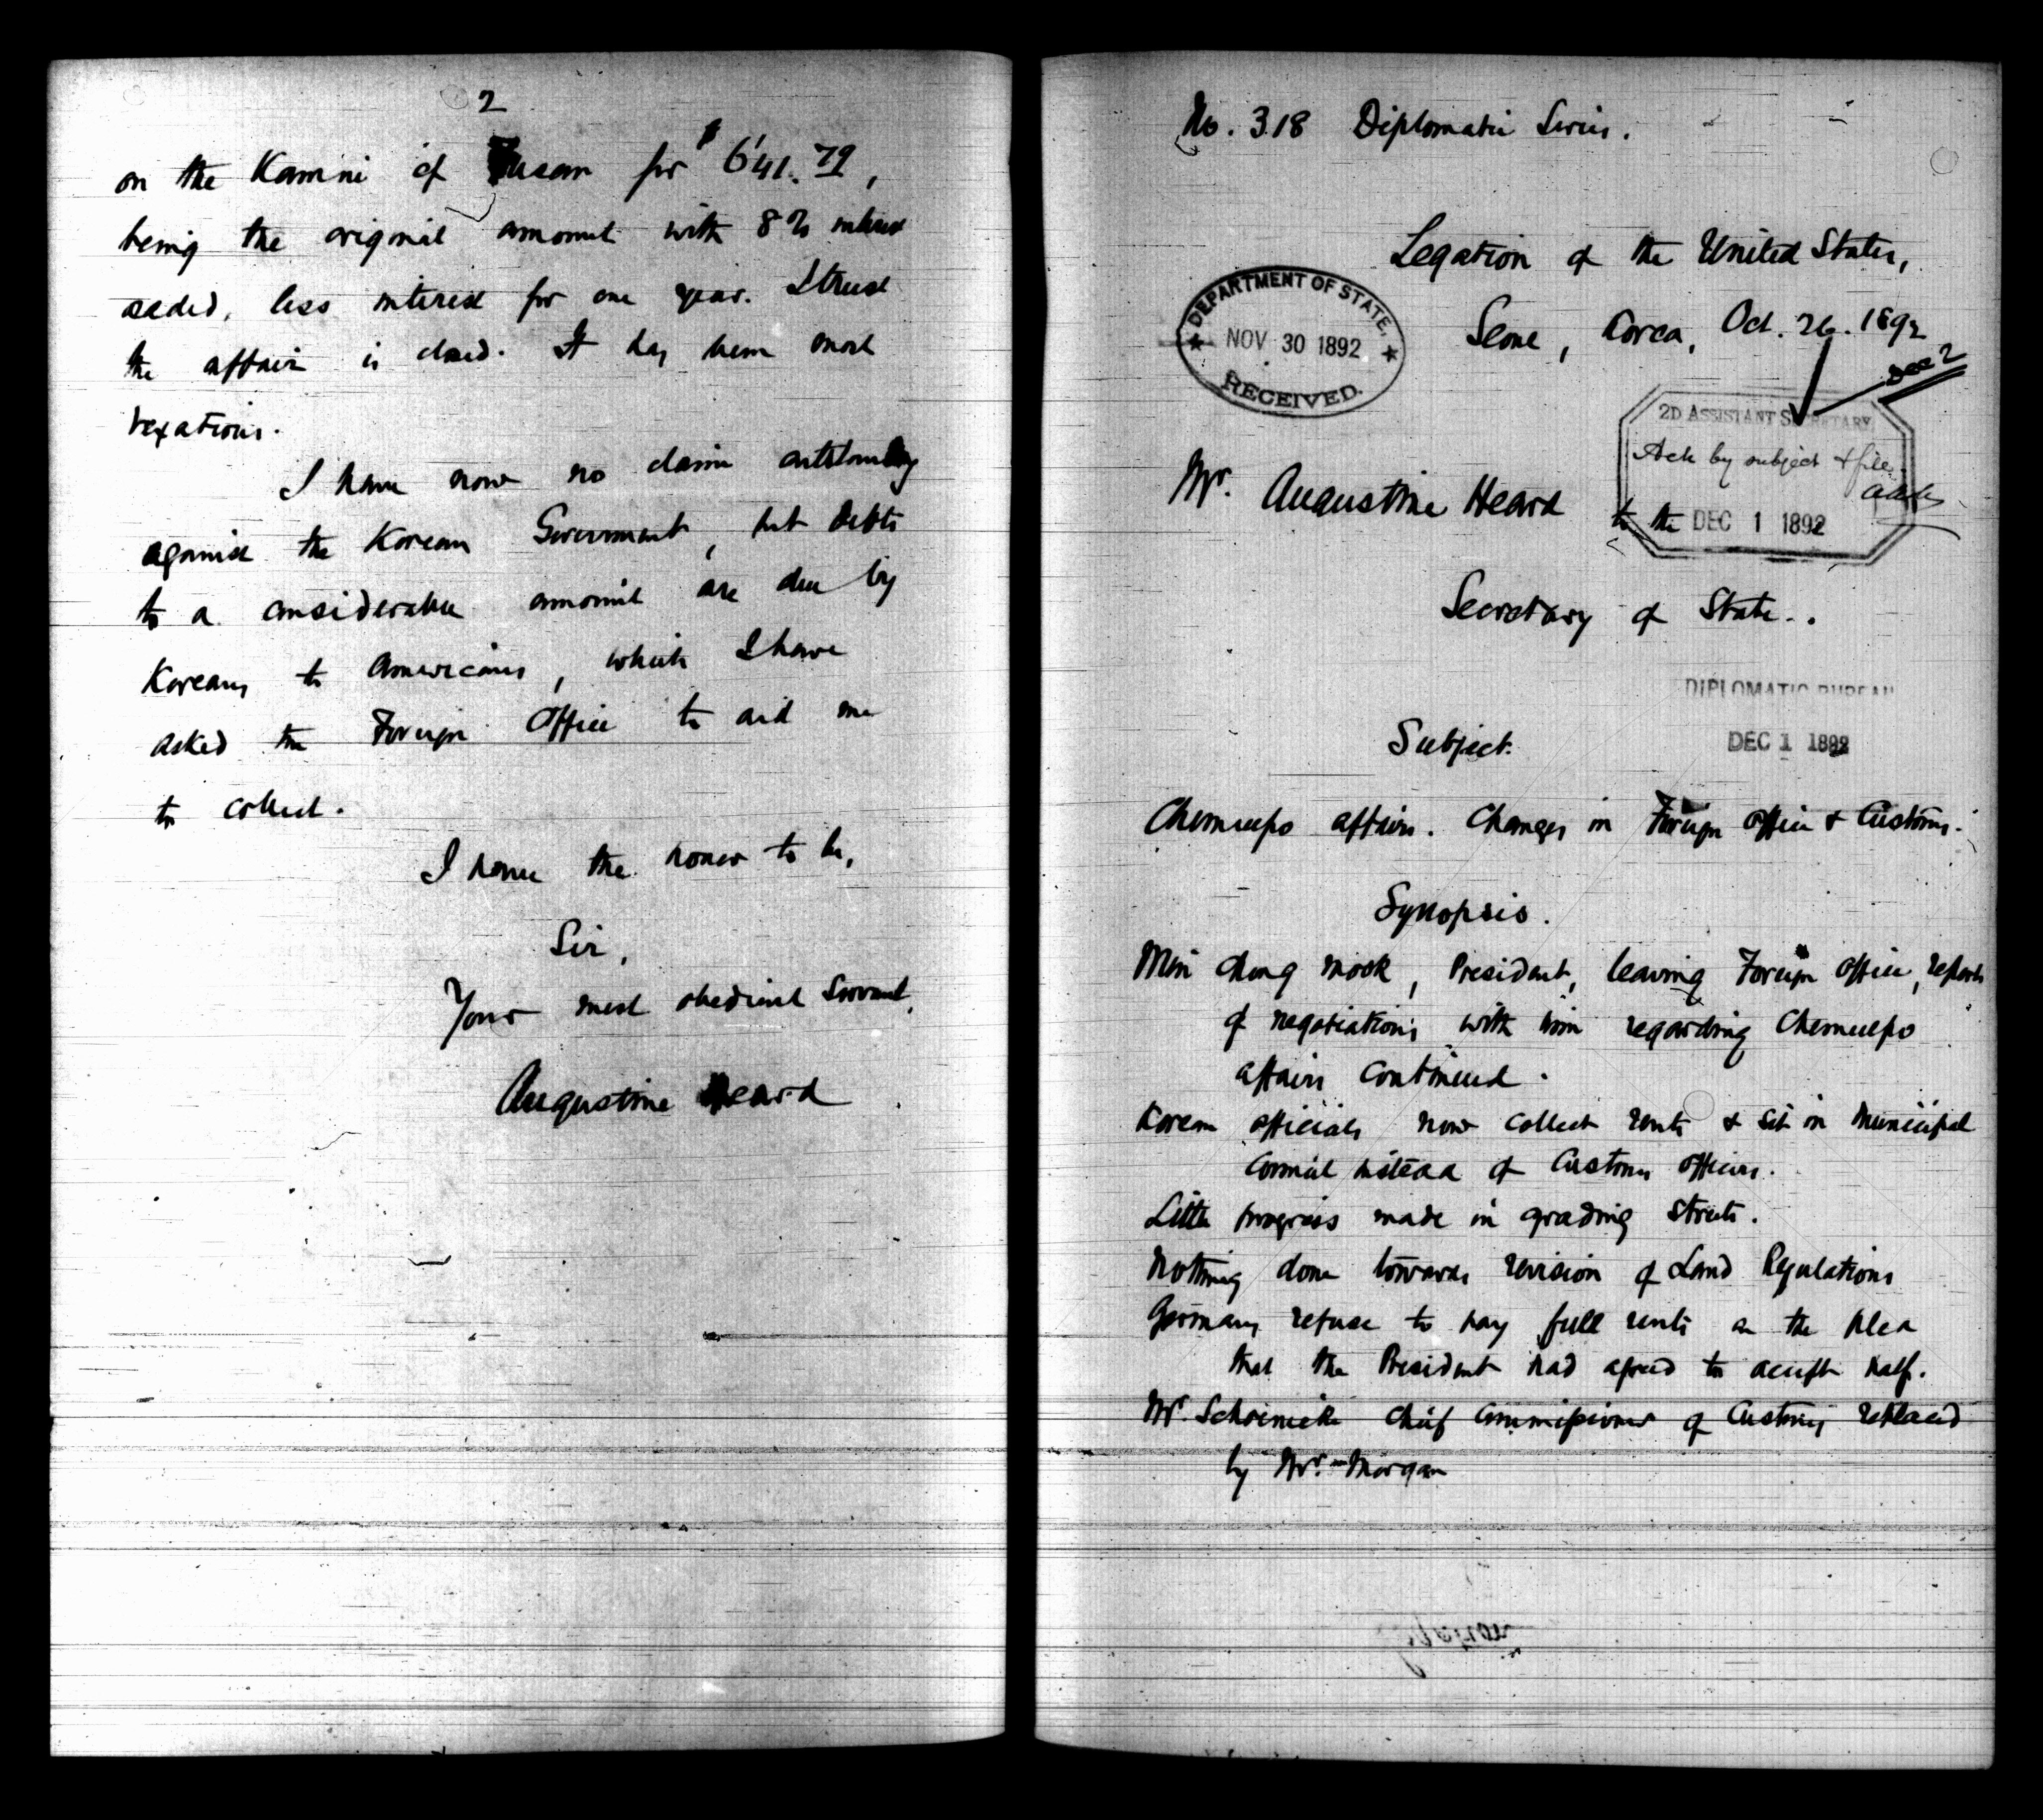 2
on the Kamni of Fusan for $641.79,
being the original amount with 8% interest
added, less interest for one year. I trust
the affair is closed. It has been most
vexatious.
I have now no claim outstanding
against the Korean Government, but debts
to a considerable amount are due by
Koreans to Americans, which I have
asked the Foreign Office to aid me
to collect.
I have the honor to be,
Sir,
Your most obedient Servant,
Augustine Heard
No. 318 Diplomatic Series.
Legation of the United States,
Seoul, Korea, Oct. 26. 1892
DEPARTMENT OF STATE,
NOV 30 1892
RECEIVED.
Dec 2
2D ASSISTANT SECRETARY
Ack by subject & file.
DEC 1 1892
Mr. Augustine Heard to the
Secretary of State.
DIPLOMATIC BUREAU
DEC 1 1892
Subject.
Chemulpo affairs. Changes in Foreign Office & Customs.
Synopsis.
Min Chong Mook, President, leaving Foreign Office, report
of negotiations with him regarding Chemulpo
affairs continued.
Korean officials now collect rents & sit in Municipal
Council instead of Customs officers.
Little progress made in grading streets.
Nothing done towards revision of Land Regulations
Germans refuse to pay full rents on the plea
that the President had agreed to accept half.
Mr. Schoenicke Chief Commissioner of Customs replaced
by Mr. Morgan